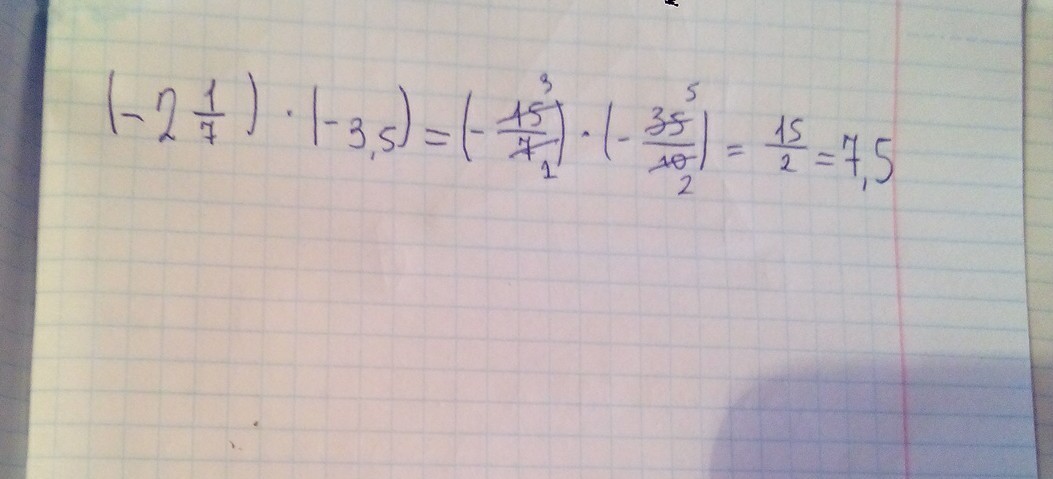 (-2 1/7) · (-3,5) = (- 15/7) · (- 35/10) = 15/2 = 7,5